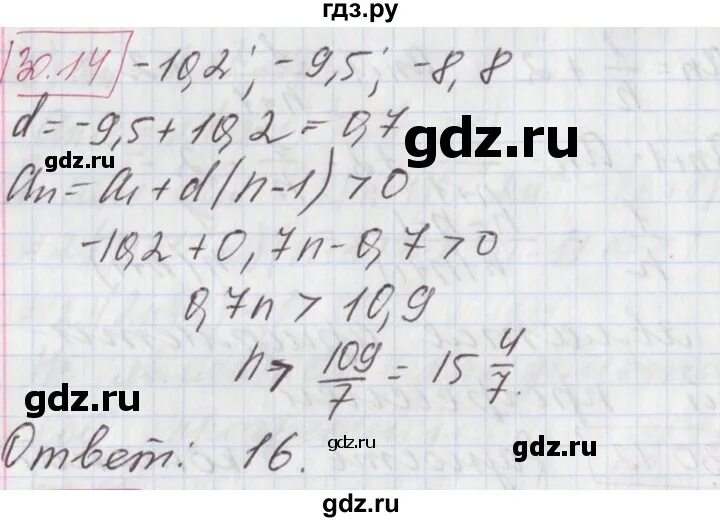 гдз.ру
30.14 -10,2; -9,5; -8,8
d = -9,5 + 10,2 = 0,7
gdz.ru
gdz.ru
an = a1 + d(n-1) > 0
-10,2 + 0,7n - 0,7 > 0
0,7n > 10,9
n > 109/7 = 15 4/7.
gdz.ru
gdz.ru
Ответ: 16.
gdz.ru
gdz.ru